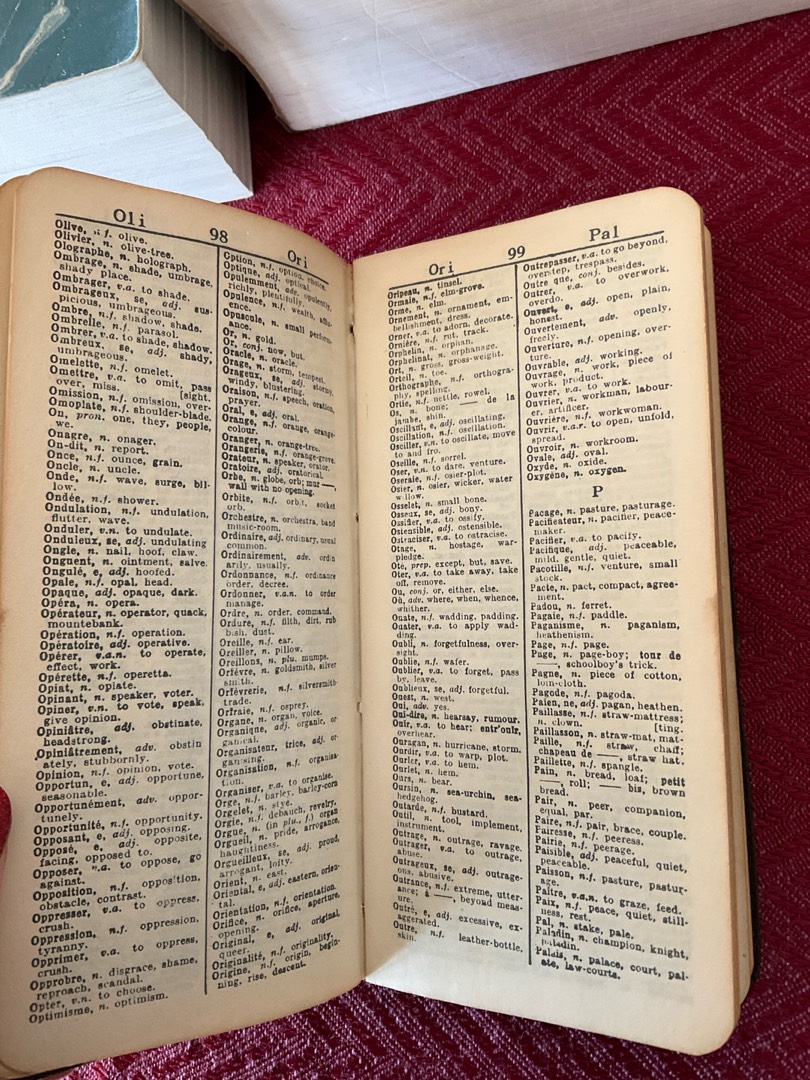 Oli 98 Ori
Olive, n.f. olive.
Olivier, n. olive-tree.
Olographe, n. holograph.
Ombrage, n. shade, umbrage,
shady place.
Ombrager, v.a. to shade.
Ombrageux, se, adj. sus-
picious, umbrageous.
Ombre, n.f. shadow, shade.
Ombrelle, n.f. parasol.
Ombrer, v.a. to shade, shadow.
Ombreux, se, adj. shady,
umbrageous.
Omelette, n.f. omelet.
Omettre, v.a. to omit, pass
over, miss. [sight.
Omission, n.f. omission, over-
Omoplate, n.f. shoulder-blade.
On, pron. one, they, people,
we.
Onagre, n. onager.
On-dit, n. report.
Once, n.f. ounce, grain.
Oncle, n. uncle.
Onde, n.f. wave, surge, bil-
low.
Ondée, n.f. shower.
Ondulation, n.f. undulation,
flutter, wave.
Onduler, v.n. to undulate.
Onduleux, se, adj. undulating
Ongle, n. nail, hoof, claw.
Onguent, n. ointment, salve.
Ongulé, e, adj. hoofed.
Opale, n.f. opal, head.
Opaque, adj. opaque, dark.
Opéra, n. opera.
Opérateur, n. operator, quack,
mountebank.
Opération, n.f. operation.
Opératoire, adj. operative.
Opérer, v.a.n. to operate,
effect, work.
Opérette, n.f. operetta.
Opiat, n. opiate.
Opinant, n. speaker, voter.
Opiner, v.n. to vote, speak,
give opinion.
Opiniâtre, adj. obstinate,
headstrong.
Opiniâtrement, adv. obstin
ately, stubbornly.
Opinion, n.f. opinion, vote.
Opportun, e, adj. opportune,
seasonable.
Opportunément, adv. oppor-
tunely.
Opportunité, n.f. opportunity.
Opposant, e, adj. opposing.
Opposé, e, adj. opposite,
facing, opposed to.
Opposer, v.a. to oppose, go
against.
Opposition, n.f. opposition,
obstacle, contrast.
Oppresser, v.a. to oppress,
crush.
Oppression, n.f. oppression,
tyranny.
Opprimer, v.a. to oppress,
crush.
Opprobre, n. disgrace, shame,
reproach, scandal.
Opter, v.n. to choose.
Optimisme, n. optimism.
Option, n.f. option, choice.
Optique, adj. optical.
Opulemment, adv. opulently,
richly, plentifully.
Opulence, n.f. wealth, affu-
ence.
Opuscule, n. small perform-
ance.
Or, n. gold.
Or, conj. now, but.
Oracle, n. oracle.
Orage, n. storm, tempest.
Orageux, se, adj. stormy,
windy, blustering.
Oraison, n.f. speech, oration,
prayer.
Oral, e, adj. oral.
Orange, n.f. orange, orange-
colour.
Oranger, n. orange-tree.
Orangerie, n.f. orange-grove.
Orateur, n. speaker, orator.
Oratoire, adj. oratorical.
Orbe, n. globe, orb; mur —,
wall with no opening.
Orbite, n.f. orbit, socket
orb.
Orchestre, n. orchestra, band
music-room.
Ordinaire, adj. ordinary, usual
common.
Ordinairement, adv. ordin
arily, usually.
Ordonnance, n.f. ordinance
order, decree.
Ordonner, v.a.n. to order
manage.
Ordre, n. order, command.
Ordure, n.f. filth, dirt, rub
bish, dust.
Oreille, n.f. ear.
Oreiller, n. pillow.
Oreillons, n. plu. mumps.
Orfèvre, n. goldsmith, silver
smith.
Orfèvrerie, n.f. silversmith-
trade.
Orfraie, n.f. osprey.
Organe, n. organ, voice.
Organique, adj. organic, or-
ganical.
Organisateur, trice, adj. or-
ganising.
Organisation, n.f. organisa-
tion.
Organiser, v.a. to organise.
Orge, n.f. barley, barley-corn
Orgelet, n. stye.
Orgie, n.f. debauch, revelry.
Orgue, n. (in plu., f.) organ
Orgueil, n. pride, arrogance,
haughtiness.
Orgueilleux, se, adj. proud,
arrogant, lofty.
Orient, n. east.
Oriental, e, adj. eastern, orien-
tal.
Orientation, n.f. orientation.
Orifice, n. orifice, aperture,
opening.
Original, e, adj. original,
queer.
Originalité, n.f. originality.
Origine, n.f. origin, begin-
ning, rise, descent.
Ori 99 Pal
Oripeau, n. tinsel.
Ormaie, n.f. elm-grove.
Orme, n. elm.
Ornement, n. ornament, em-
bellishment, dress.
Orner, v.a. to adorn, decorate.
Ornière, n.f. rut, track.
Orphelin, n. orphan.
Orphelinat, n. orphanage.
Ort, n. gross, gross-weight.
Orteil, n. toe.
Orthographe, n.f. orthogra-
phy, spelling.
Ortie, n.f. nettle, rowel.
Os, n. bone; — de la
jambe, shin.
Oscillant, e, adj. oscillating.
Oscillation, n.f. oscillation.
Osciller, v.n. to oscillate, move
to and fro.
Oseille, n.f. sorrel.
Oser, v.n. to dare, venture.
Oseraie, n.f. osier-plot.
Osier, n. osier, wicker, water
willow.
Osselet, n. small bone.
Osseux, se, adj. bony.
Ossifier, v.a. to ossify.
Ostensible, adj. ostensible.
Ostraciser, v.a. to ostracise.
Otage, n. hostage, war-
pledge.
Oté, prep. except, but, save.
Oter, v.a. to take away, take
off, remove.
Ou, conj. or, either, else.
Où, adv. where, when, whence,
whither.
Ouate, n.f. wadding, padding.
Ouater, v.a. to apply wad-
ding.
Oubli, n. forgetfulness, over-
sight.
Oublie, n.f. wafer.
Oublier, v.a. to forget, pass
by, leave.
Oublieux, se, adj. forgetful.
Ouest, n. west.
Oui, adv. yes.
Ouï-dire, n. hearsay, rumour.
Ouïr, v.a. to hear; entr'ouïr,
overhear.
Ouragan, n. hurricane, storm.
Ourdir, v.a. to warp, plot.
Ourler, v.a. to hem.
Ourlet, n. hem.
Ours, n. bear.
Oursin, n. sea-urchin, sea-
hedgehog.
Outarde, n.f. bustard.
Outil, n. tool, implement,
instrument.
Outrage, n. outrage, ravage.
Outrager, v.a. to outrage,
abuse.
Outrageux, se, adj. outrage-
ous, abusive.
Outrance, n.f. extreme, utter-
ance; à —, beyond meas-
ure.
Outré, e, adj. excessive, ex-
aggerated.
Outre, n.f. leather-bottle,
skin.
Outrepasser, v.a. to go beyond,
overstep, trespass.
Outre que, conj. besides.
Outrer, v.a. to overwork,
overdo.
Ouvert, e, adj. open, plain,
honest.
Ouvertement, adv. openly,
freely.
Ouverture, n.f. opening, over-
ture.
Ouvrable, adj. working.
Ouvrage, n. work, piece of
work, product.
Ouvrer, v.a. to work.
Ouvrier, n. workman, labour-
er, artificer.
Ouvrière, n.f. workwoman.
Ouvrir, v.a.r. to open, unfold,
spread.
Ouvroir, n. workroom.
Ovale, adj. oval.
Oxyde, n. oxide.
Oxygène, n. oxygen.
P
Pacage, n. pasture, pasturage.
Pacificateur, n. pacifier, peace-
maker.
Pacifier, v.a. to pacify.
Pacifique, adj. peaceable,
mild, gentle, quiet.
Pacotille, n.f. venture, small
stock.
Pacte, n. pact, compact, agree-
ment.
Padou, n. ferret.
Pagaie, n.f. paddle.
Paganisme, n. paganism,
heathenism.
Page, n.f. page.
Page, n. page-boy; tour de
—, schoolboy's trick.
Pagne, n. piece of cotton,
loin-cloth.
Pagode, n.f. pagoda.
Païen, ne, adj. pagan, heathen.
Paillasse, n.f. straw-mattress;
n. clown. [ting.
Paillasson, n. straw-mat, mat-
Paille, n.f. straw, chaff;
chapeau de —, straw hat.
Paillette, n.f. spangle.
Pain, n. bread, loaf; petit
—, roll; — bis, brown
bread.
Pair, n. peer, companion,
equal, par.
Paire, n.f. pair, brace, couple.
Pairesse, n.f. peeress.
Pairie, n.f. peerage.
Paisible, adj. peaceful, quiet,
peaceable.
Paisson, n.f. pasture, pastur-
age.
Paître, v.a.n. to graze, feed.
Paix, n.f. peace, quiet, still-
ness, rest.
Pal, n. stake, pale.
Paladin, n. champion, knight,
paladin.
Palais, n. palace, court, pal-
ate, law-courts.